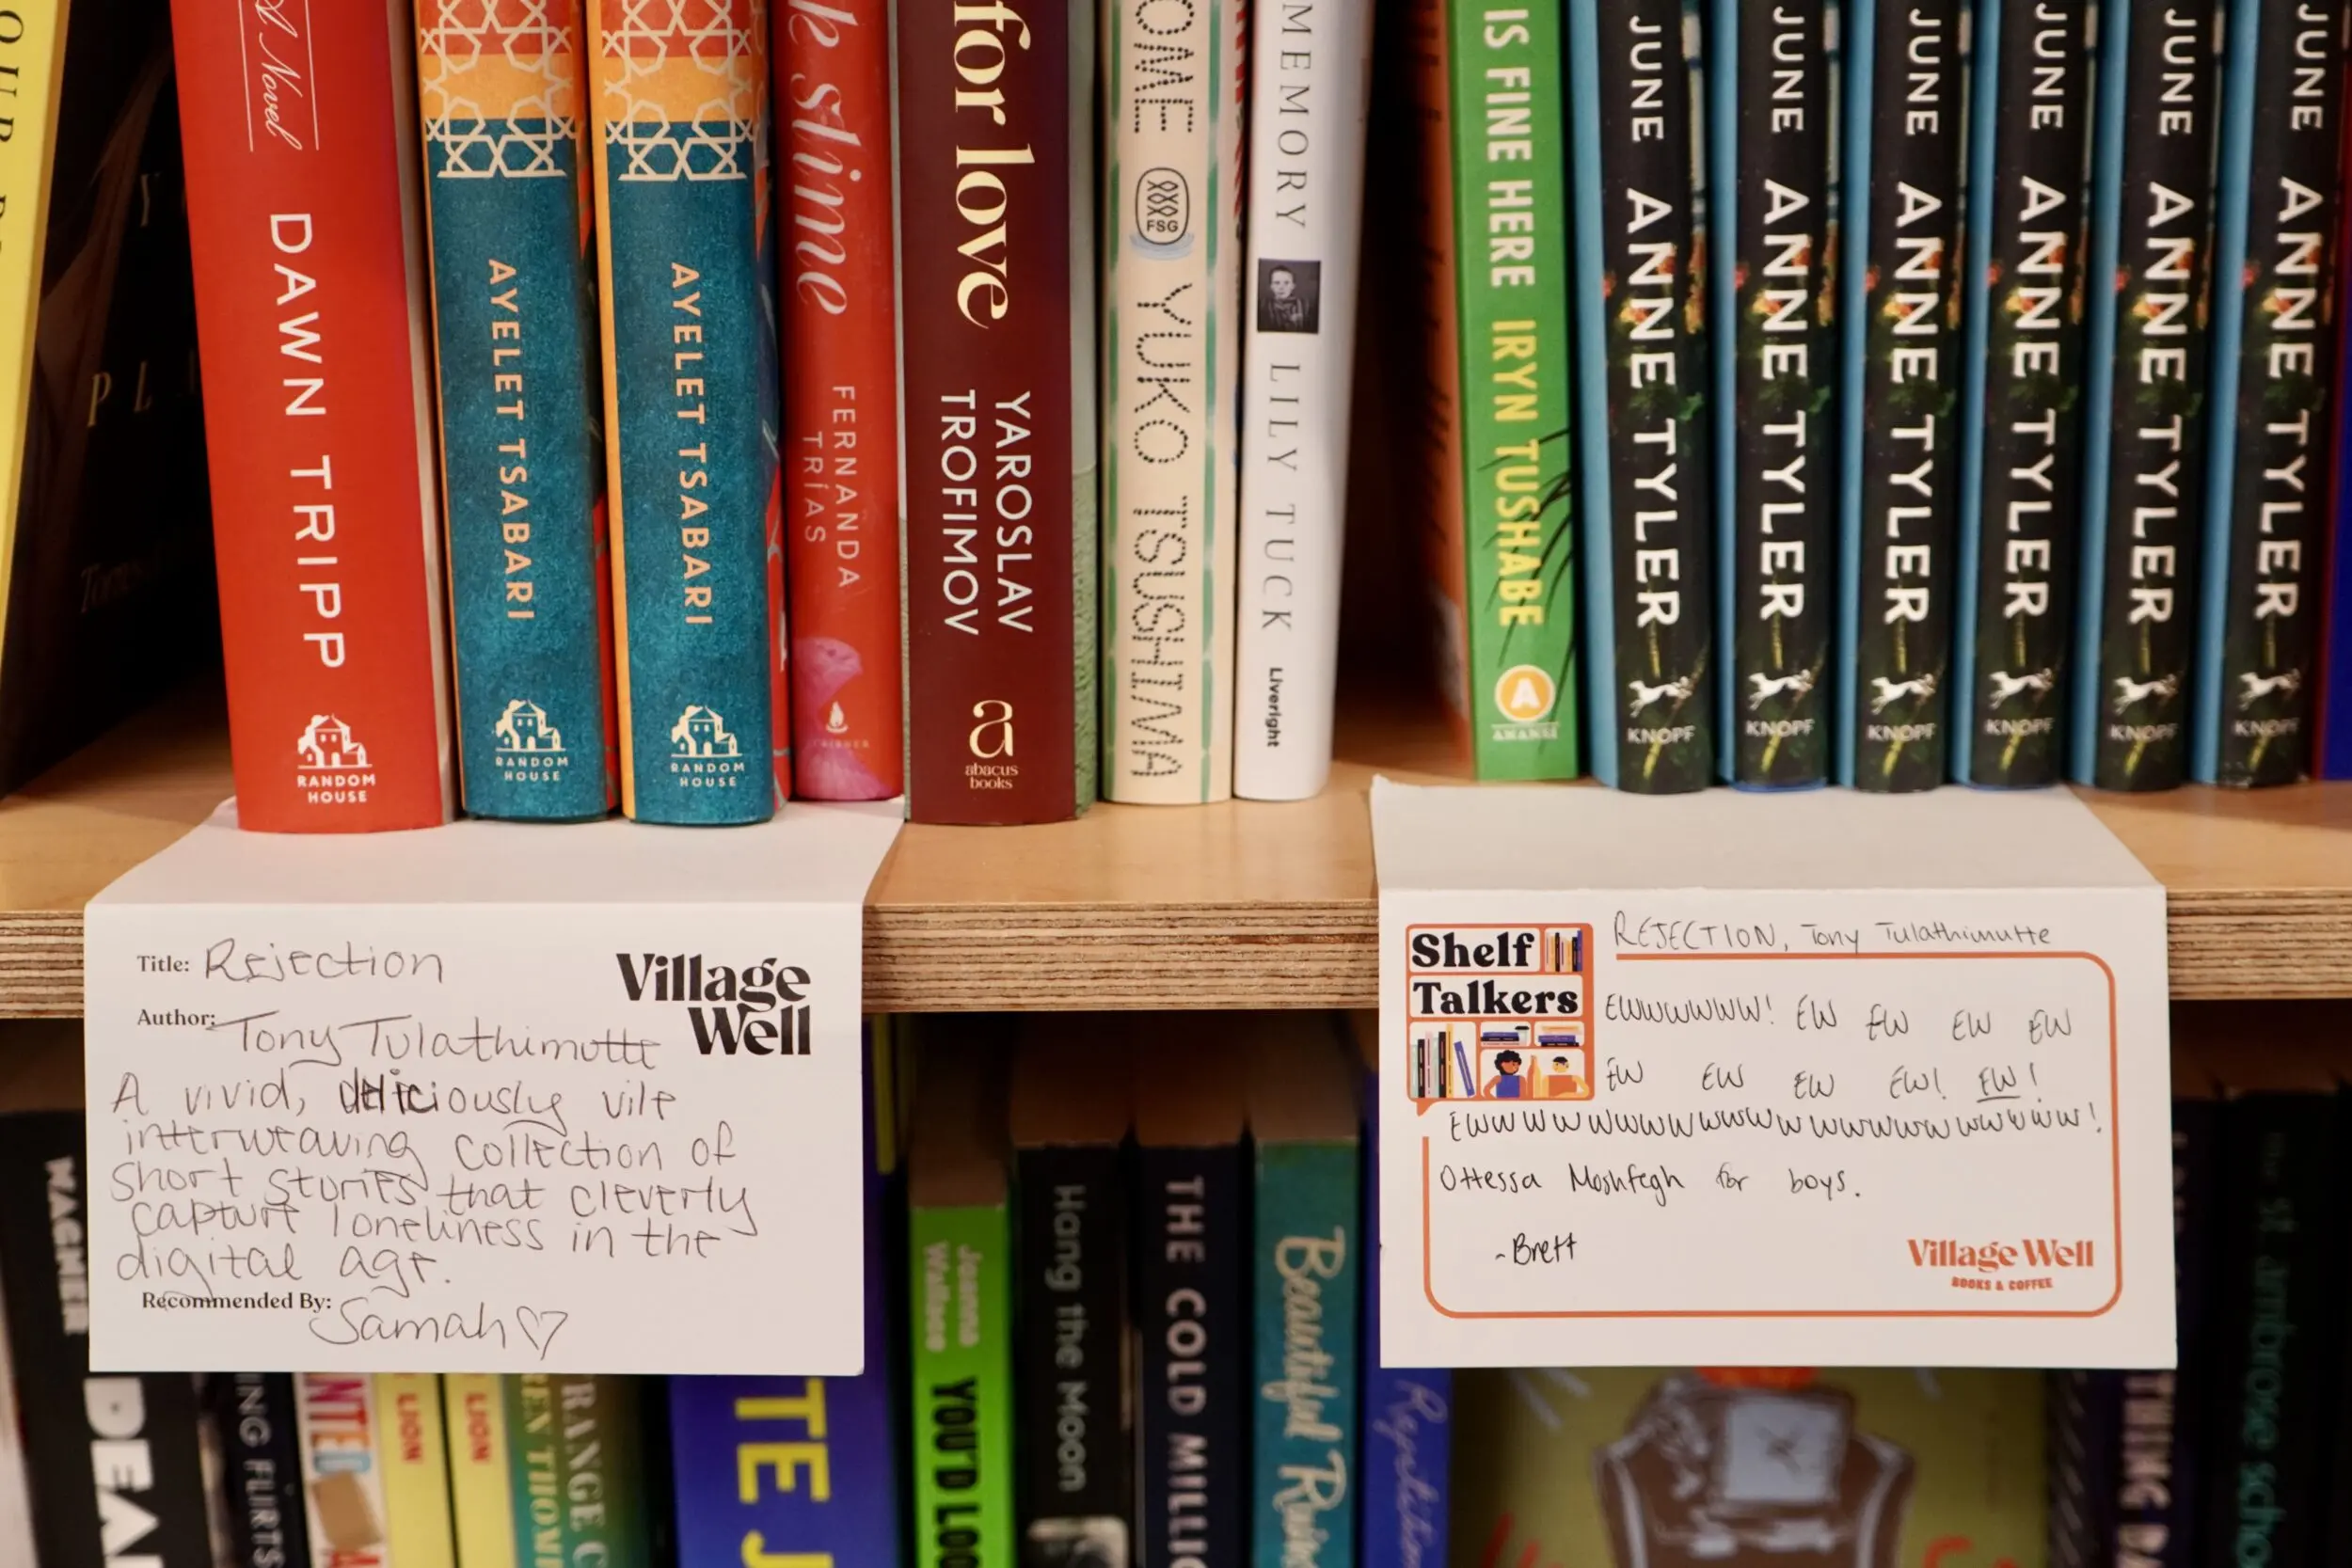 A Novel
DAWN TRIPP
RANDOM
HOUSE
AYELET TSABARI
RANDOM
HOUSE
AYELET TSABARI
RANDOM
HOUSE
slime
FERNANDA
TRÍAS
for love
YAROSLAV
TROFIMOV
a
abacus
books
OME
FSG
YUKO TSUSHIMA
MEMORY
LILY TUCK
Liveright
IS FINE HERE IRYN TUSHABE
A
ANANSI
JUNE ANNE TYLER
KNOPF
JUNE ANNE TYLER
KNOPF
JUNE ANNE TYLER
KNOPF
JUNE ANNE TYLER
KNOPF
JUNE ANNE TYLER
KNOPF
JUNE ANNE TYLER
KNOPF
Title: Rejection
Village
Well
Author: Tony Tulathimutte
A vivid, deliciously vile
interweaving collection of
short stories that cleverly
capture loneliness in the
digital age.
Recommended By: Samah♡
Shelf
Talkers
REJECTION, Tony Tulathimutte
EWWWWWW! EW EW EW EW
EW EW EW EW! EW!
EWWWWWWWWWWWWWWWWWWWWWW!
Ottessa Moshfegh for boys.
-Brett
Village Well
BOOKS & COFFEE
WAGNER
DEA
ING FLIRTS
LION
LION
RANGE
EN THOM
TE J
Joanne
Wallace
YOU'D LOO
Hang the Moon
THE COLD MILLIO
Beautiful Ruin
Reputation
THING
st. ambrose scho